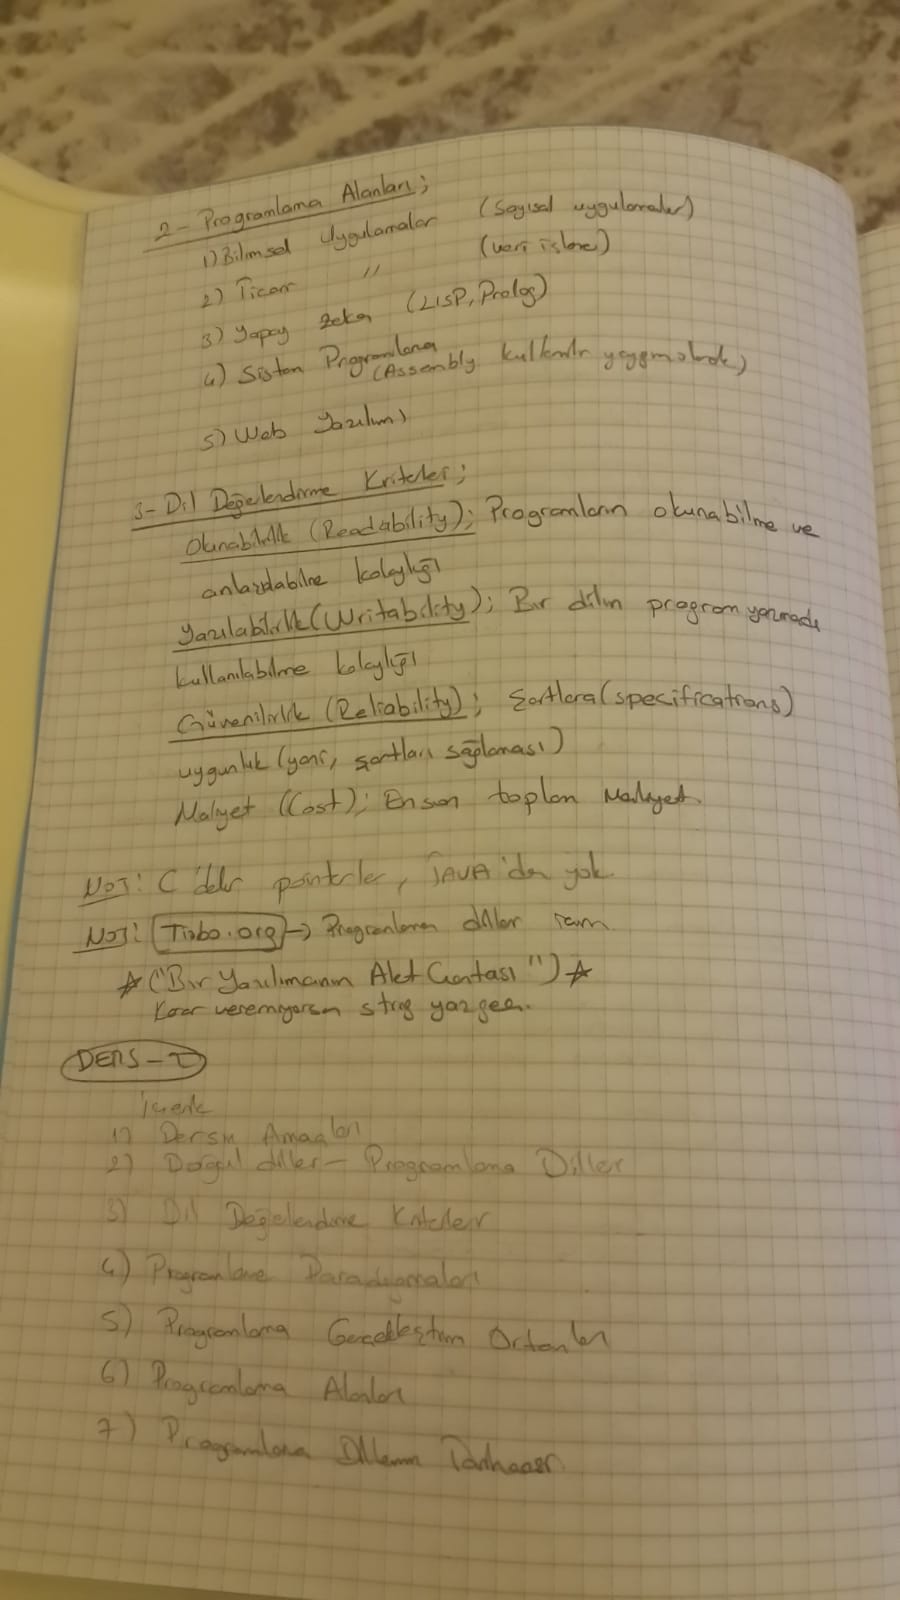 2 - Programlama Alanları;
1) Bilimsel Uygulamalar (sayısal uygulamalar)
2) Ticari " (veri işleme)
3) Yapay Zeka (LISP, Prolog)
4) Sistem Programlama
(Assembly kullanılır yaygın olarak)
5) Web Yazılımı
3 - Dil Değerlendirme Kriterleri;
Okunabilirlik (Readability); Programların okunabilme ve
anlaşılabilme kolaylığı
Yazılabilirlik (Writability); Bir dilin program yazmada
kullanılabilme kolaylığı
Güvenilirlik (Reliability); Şartlara (specifications)
uygunluk (yani, şartları sağlaması)
Maliyet (Cost); En son toplam maliyet.
NOT: C'deki pointerler, JAVA'da yok.
NOT: Tiobo.org → Programlama dilleri
★ ("Bir Yazılımcının Alet Çantası") ★
Karar veremiyorsan string yaz geç.
DERS - I
İçerik
1) Dersin Amaçları
2) Doğal diller - Programlama Dilleri
3) Dil Değerlendirme Kriterleri
4) Programlama Paradigmaları
5) Programlama Gerçekleştirim Ortamları
6) Programlama Alanları
7) Programlama Dillerinin Tarihçesi